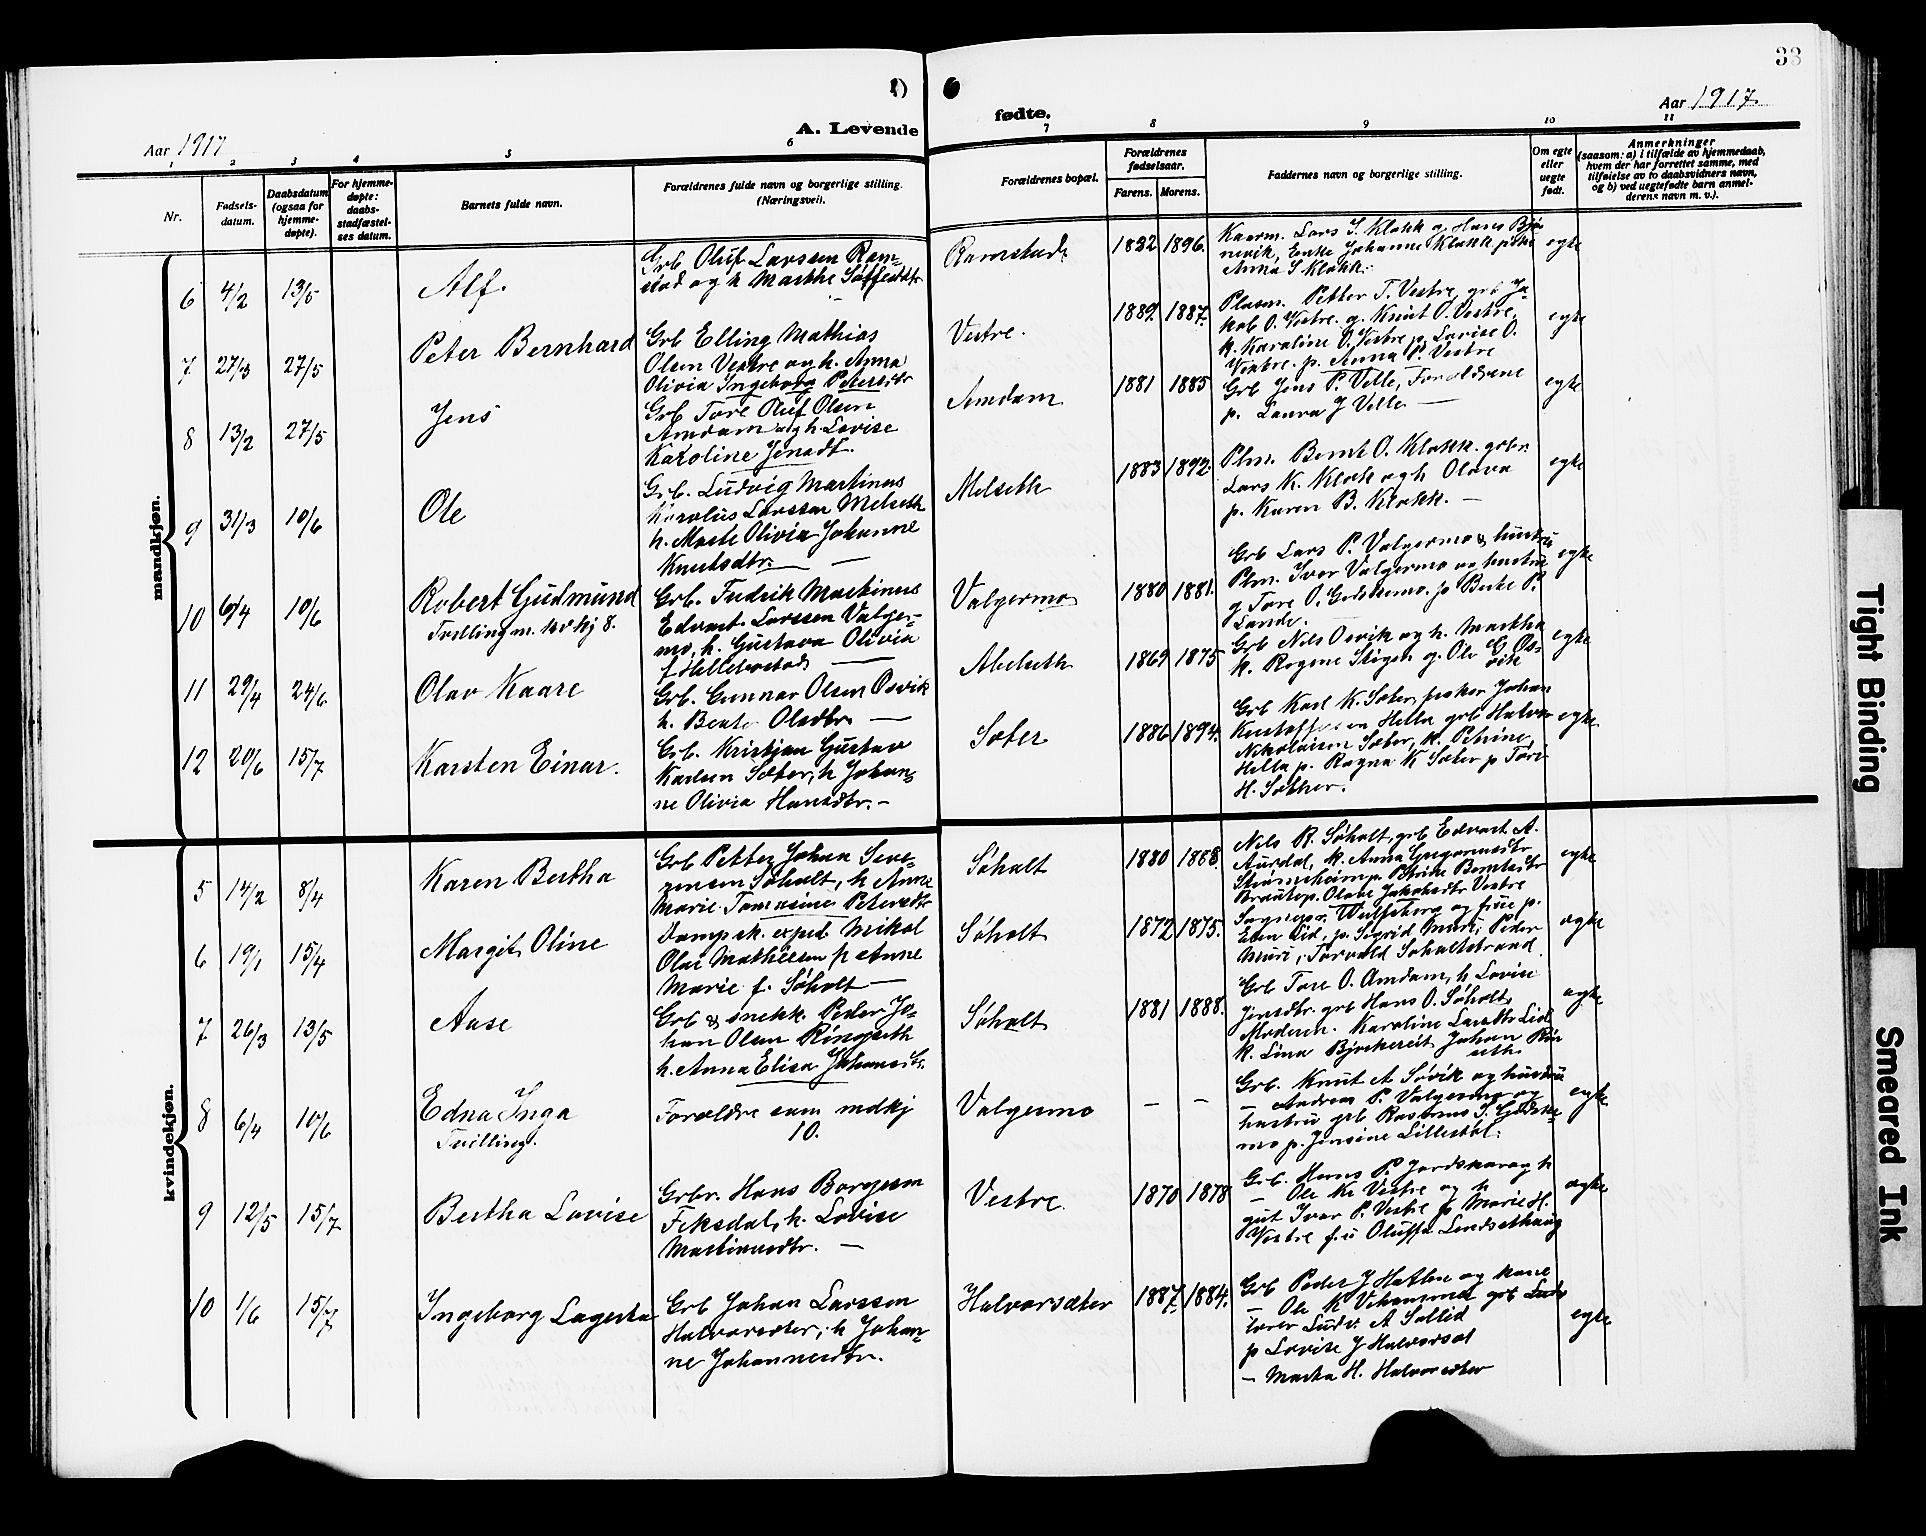 33
Aar 1917
A. Levende
fødte.
Aar 1917.
1 2 3 4 5 6 7 8 9 10 11
Nr.
Fødsels-
datum.
Daabsdatum
(ogsaa for
hjemme-
døpte).
For hjemme-
døpte:
daabs-
stadfæstel-
ses datum.
Barnets fulde navn.
Forældrenes fulde navn og borgerlige stilling.
(Næringsvei).
Forældrenes bopæl.
Forældrenes
fødselsaar.
Farens. Morens.
Faddernes navn og borgerlige stilling.
Om egte
eller
uegte
født.
Anmerkninger
(saasom: a) i tilfælde av hjemmedaab,
hvem der har forrettet samme, med
tilføielse av to daabsvidners navn,
og b) ved uegtefødte barn anmel-
derens navn m. v.).
mandkjøn.
6 4/2 13/5 Alf.
Grb Oluf Larssen Ram-
stad og h Marthe
Ramstad 1882 1896.
Kaarm. Lars I. Klokk og Hans Bjør
nevik, Enke Johanne Klokk pike
Anna I Klokk.
egte
7 27/3 27/5 Peter Bernhard
Grb Elling Mathias
Olsen Vestre og h. Anna
Olivia Ingeborg Petersdtr
Vestre. 1889. 1887.
Plasm. Petter T. Vestre, grb Ja-
kob O. Vestre. g. Knut O. Vestre,
k. Karoline O. Vestre p. Lovise O.
Vestre. p. Anna P. Vestre
egte
8 13/2 27/5 Jens
Grb Tore Oluf Olsen
Amdam og h Lovise
Karoline Jensdt.
Amdam 1881 1885
Grb Jens P. Velle, Forældrene
p. Laura J Velle —
egte
9 31/3 10/6 Ole
Grb. Ludvig Martinus
Karolus Larssen Melseth
h. Marte Olivia Johanne
Knutsdtr. —
Melseth 1883 1892.
Plm. Bernt O. Klokk. grbr.
Lars K. Klokk og h Olava
p. Karen B. Klokk. —
egte
10 6/4 10/6 Robert Gudmund
Tvilling m. kv kj 8.
Grb. Fredrik Martinus
Edvart Larssen Valger-
mo, h. Gustava Olivia
f Hellebostad —
Valgermo 1880 1881.
Grb Lars P. Valgermo & hustru
Plm. Iver Valgermo og hustru
g Tore O. Gjedskemo, p Berte P.
Lande.
egte
11 29/4 24/6 Olav Kaare
Grb. Gunnar Olsen Osvik
h. Beate Olsdtr. —
Abelseth 1869 1875
Grb Nils Osvik og h. Martha
k. Ragne Stigen g. Ole G Os-
vik
egte
12 20/6 15/7 Karsten Einar.
Grb. Kristian Gustav
Karlsen Sæter, h Johan-
ne Olivia Hansdtr. —
Sæter 1886 1894.
Grb Karl K. Sæter, Johan
Kristoffersen Hella grb Halvor
Nikolaisen Sæter, k. Petrine
Hella p. Ragna K Sæter p Tore
H. Sæther.
egte
kvindekjøn.
5 14/2 8/4 Karen Bertha
Grb Petter Johan Seve-
rinsen Søholt, h Anne
Marie Tomasine Petersdtr
Søholt 1880 1888
Nils R. Søholt, grb Edvart A.
Aurdal, k. Anna Gregoriusdtr
Strømsheim p. Petrike Berntsdtr
Brautep. Olave Jakobsdtr Vestre
egte
6 19/1 15/4 Margit Oline
Dampsk. exped. Nikol
Olai Mathiesen h Anne
Marie f. Søholt —
Søholt 1872 1875.
og frue p.
Eben Lid, p. Sigrid Muri, Peder
Muri, Torvald Søholtstrand
egte
7 26/3 13/5 Aase
Grb & snekk. Peder Jo-
han Olsen Ringseth
h. Anna Elisa Johansdtr.
Søholt 1881 1888.
Grb Tore O. Amdam, h Lovise
Jensdtr. grb Hans O. Søholt,
Moderen. Karoline Larsdtr Lid
k. Lina Bjørkereit Johan Rin
seth
egte
8 6/4 10/6 Edna Inga
Tvilling.
Forældre som mdkj
10.
Valgermo — —
Grb. Knut A Søvik og hustru
— Andreas P. Valgermo og
hustru grb Rasmus I. Gjedske-
mo p. Jensine Lillestøl.
egte
9 12/5 15/7 Bertha Lovise
Grbr. Hans Børgesen
Fiksdal, h. Lovise
Martinusdtr. —
Vestre 1870 1878
Grb. Hans P. og h
— Ole K. Vestre og h
gut Iver P. Vestre p Marie H.
Vestre
egte
10 1/6 15/7 Ingeborg Lagerta
Grb Johan Larssen
Halvorsæter, h Johan-
ne Johannesdtr.
Halvorsæter 1887. 1884.
Grb Peder J Hatlen og kone
— Ole K grb Lud
Ludv. A Sollid
p Lovise J Halvorsæt
— Marta H. Halvorsæter
egte
Tight Binding
Smeared Ink